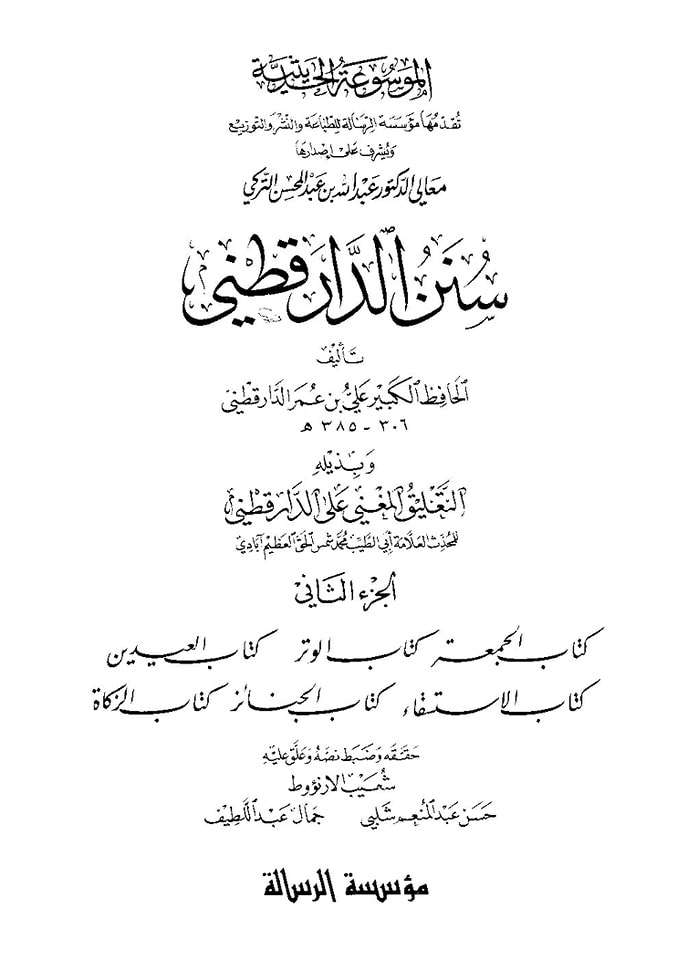 الموسوعة الحديثية
تقدمها مؤسسة الرسالة للطباعة والنشر والتوزيع
ويشرف على إصدارها
معالي الدكتور عبد الله بن عبد المحسن التركي
سنن الدارقطني
تأليف
الحافظ الكبير علي بن عمر الدارقطني
٣٠٦ - ٣٨٥ هـ
وبذيله
التعليق المغني على الدارقطني
للمحدث العلامة أبي الطيب محمد شمس الحق العظيم آبادي
الجزء الثاني
كتاب الجمعة كتاب الوتر كتاب العيدين
كتاب الاستسقاء كتاب الجنائز كتاب الزكاة
حققه وضبط نصه وعلق عليه
شعيب الارنؤوط
حسن عبد المنعم شلبي جمال عبد اللطيف
مؤسسة الرسالة